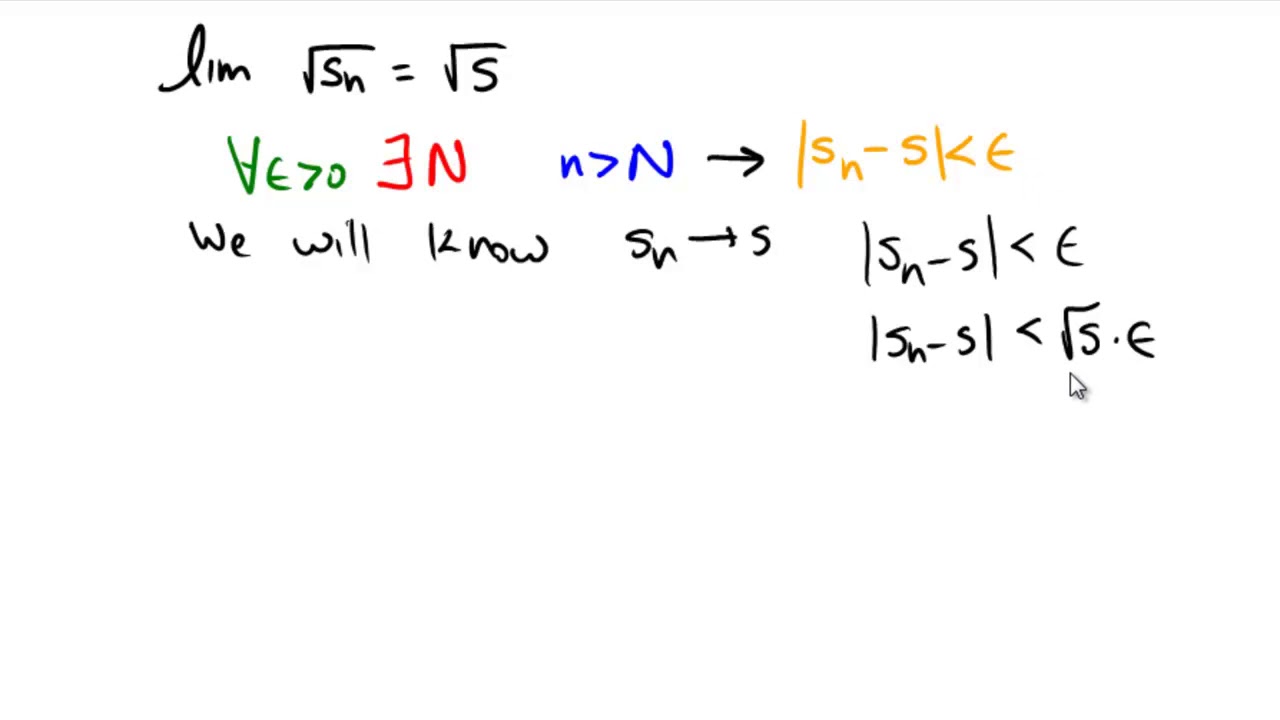 lim √sₙ = √s
∀ϵ>0 ∃N n>N → |sₙ-s|<ϵ
We will know sₙ→s |sₙ-s|<ϵ
|sₙ-s| < √s·ϵ